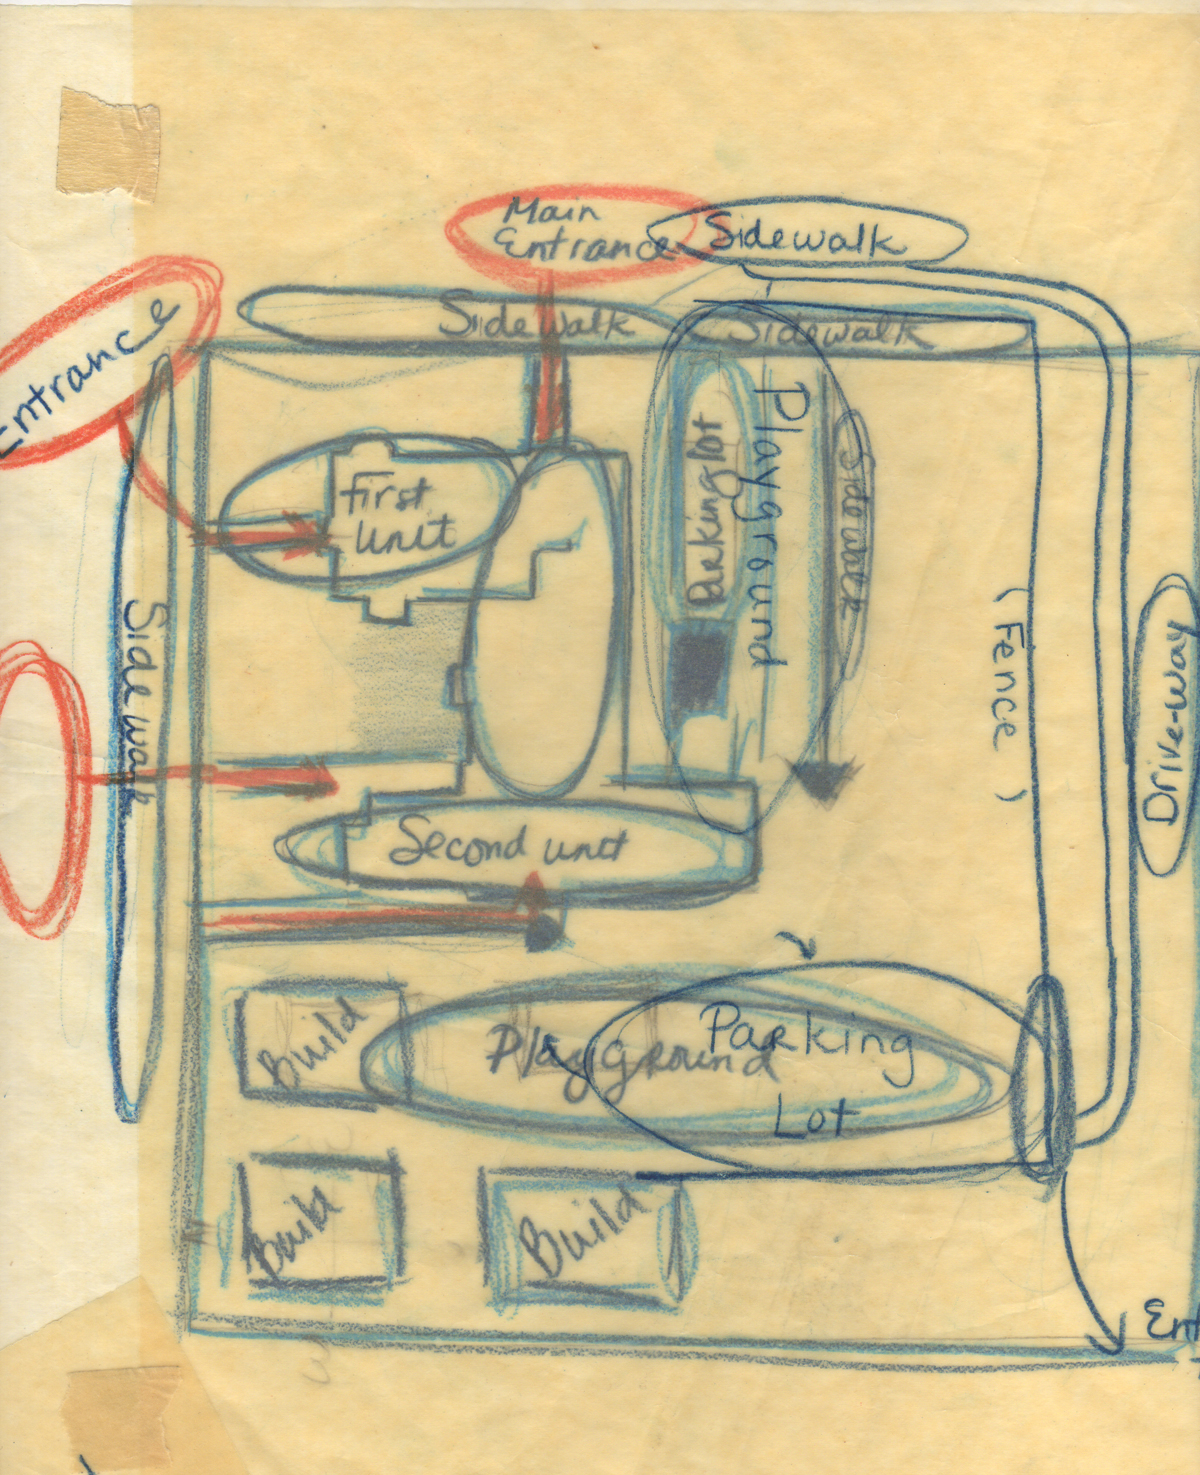 Main
Entrance
Sidewalk
Sidewalk
Sidewalk
Entrance
Playground
Parking lot
Sidewalk
First
unit
(Fence)
Drive-way
Sidewalk
Second unit
Build
Playground
Parking
Lot
Build
Build
Ent